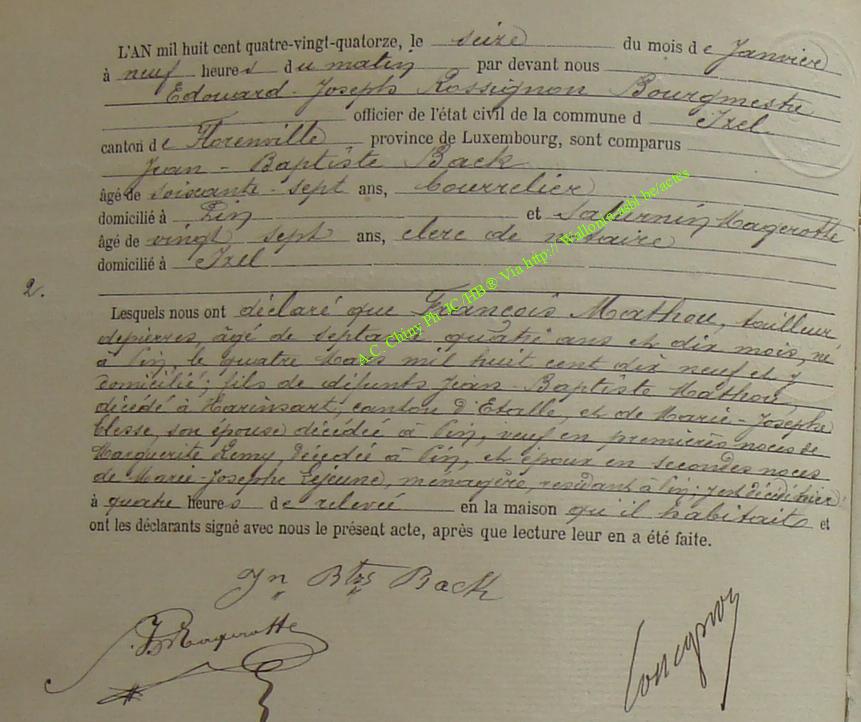 L'AN mil huit cent quatre-vingt-quatorze, le seize du mois de Janvier
à neuf heures du matin par devant nous
Edouard-Joseph Rossignon Bourgmestre
officier de l'état civil de la commune d Izel
canton de Florenville province de Luxembourg, sont comparus
Jean-Baptiste Back
âgé de soixante-sept ans, bourrelier
domicilié à Pin et Saturnin Magerotte
âgé de vingt sept ans, clerc de notaire
domicilié à Izel
2.
Lesquels nous ont déclaré que François Mathou, tailleur
de pierres, âgé de septante quatre ans et dix mois, né
à Pin le quatre Mars mil huit cent dix neuf et y
domicilié; fils de défunts Jean-Baptiste Mathou,
décédé à Harinsart, canton d'Etalle, et de Marie-Josephe
Blesse, son épouse décédée à Pin, veuf en premières noces de
Marguerite Remy, décédée à Pin, et époux en secondes noces
de Marie-Josephe Lejeune, ménagère, résidant à Pin; y est décédé hier
à quatre heures de relevée en la maison qu'il habitait et
ont les déclarants signé avec nous le présent acte, après que lecture leur en a été faite.
Jn Btes Back
Magerotte
A.C. Chiny Ph JC/HB® Via http:// Wallonia-asbl.be/actes